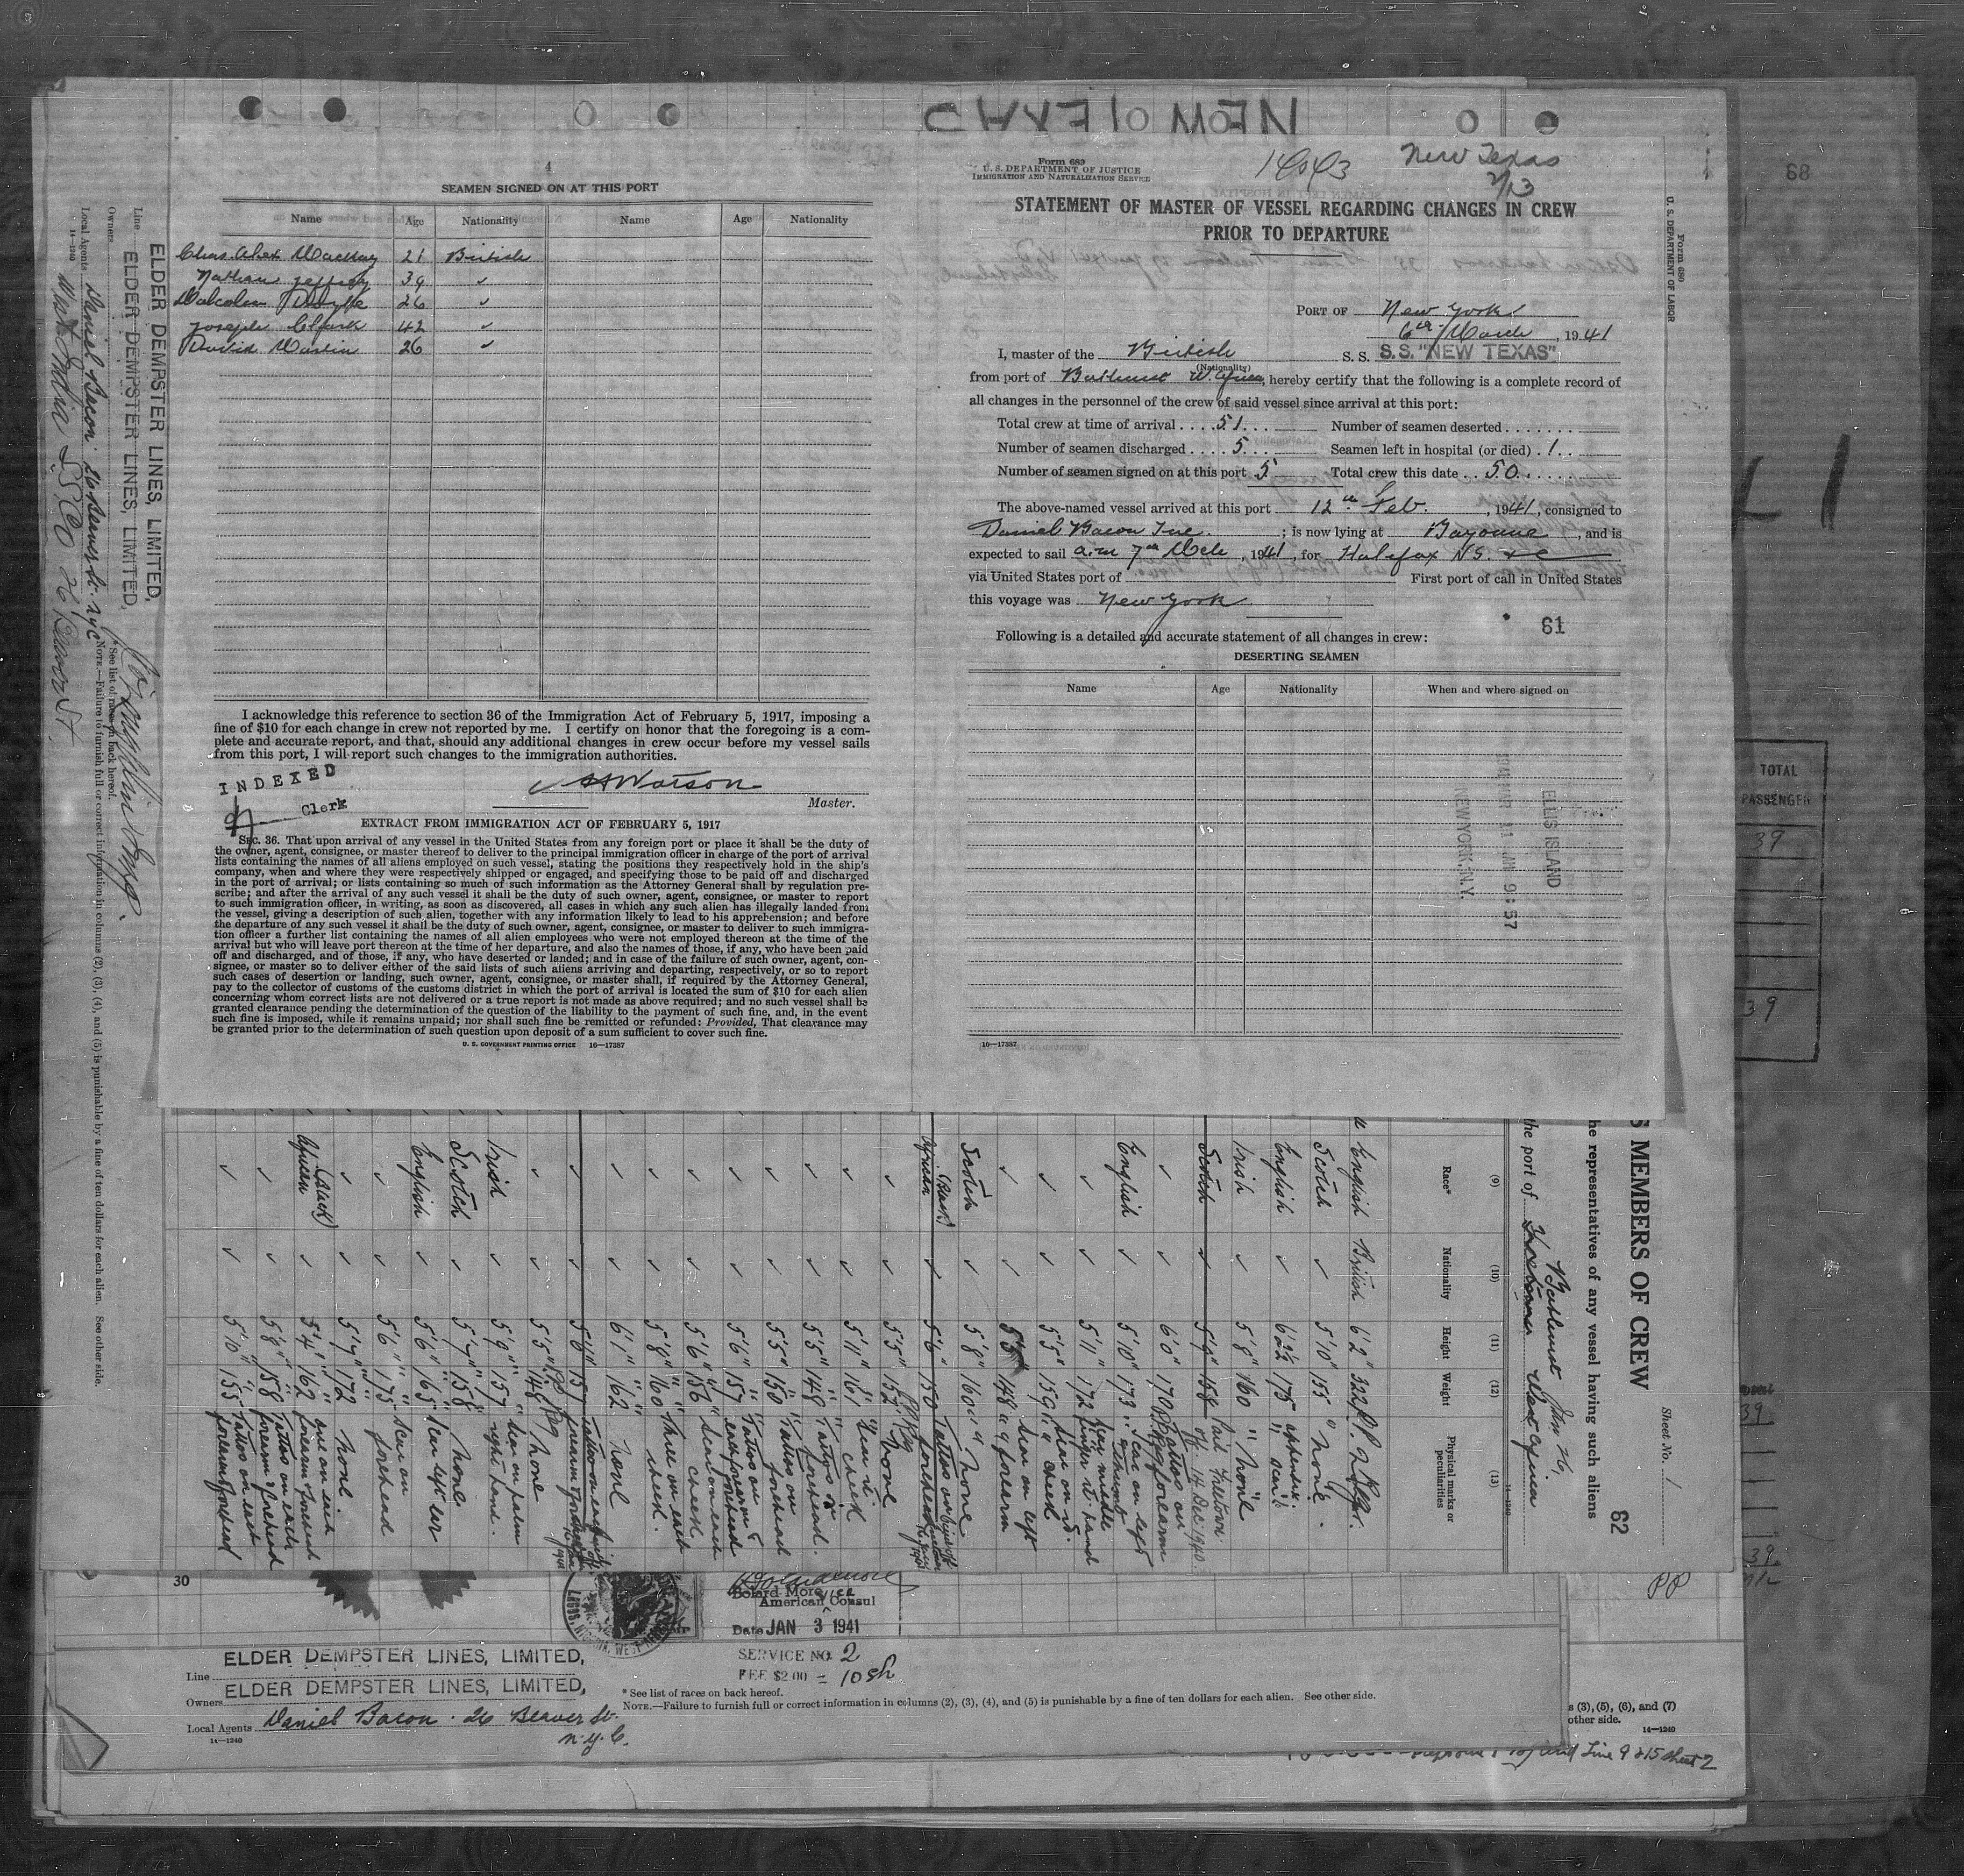 NEW TEXAS
4
SEAMEN SIGNED ON AT THIS PORT
Name Age Nationality Name Age Nationality
Chas. Alex Mackay 21 British
Nathan Jeffrey 39 "
Malcolm 26 "
Joseph Clark 42 "
David Martin 26 "
I acknowledge this reference to section 36 of the Immigration Act of February 5, 1917, imposing a
fine of $10 for each change in crew not reported by me. I certify on honor that the foregoing is a com-
plete and accurate report, and that, should any additional changes in crew occur before my vessel sails
from this port, I will report such changes to the immigration authorities.
INDEXED
Clerk
Watson
Master.
EXTRACT FROM IMMIGRATION ACT OF FEBRUARY 5, 1917
SEC. 36. That upon arrival of any vessel in the United States from any foreign port or place it shall be the duty of
the owner, agent, consignee, or master thereof to deliver to the principal immigration officer in charge of the port of arrival
lists containing the names of all aliens employed on such vessel, stating the positions they respectively hold in the ship's
company, when and where they were respectively shipped or engaged, and specifying those to be paid off and discharged
in the port of arrival; or lists containing so much of such information as the Attorney General shall by regulation pre-
scribe; and after the arrival of any such vessel it shall be the duty of such owner, agent, consignee, or master to report
to such immigration officer, in writing, as soon as discovered, all cases in which any such alien has illegally landed from
the vessel, giving a description of such alien, together with any information likely to lead to his apprehension; and before
the departure of any such vessel it shall be the duty of such owner, agent, consignee, or master to deliver to such immigra-
tion officer a further list containing the names of all alien employees who were not employed thereon at the time of the
arrival but who will leave port thereon at the time of her departure, and also the names of those, if any, who have been paid
off and discharged, and of those, if any, who have deserted or landed; and in case of the failure of such owner, agent, con-
signee, or master so to deliver either of the said lists of such aliens arriving and departing, respectively, or so to report
such cases of desertion or landing, such owner, agent, consignee, or master shall, if required by the Attorney General,
pay to the collector of customs of the customs district in which the port of arrival is located the sum of $10 for each alien
concerning whom correct lists are not delivered or a true report is not made as above required; and no such vessel shall be
granted clearance pending the determination of the question of the liability to the payment of such fine, and, in the event
such fine is imposed, while it remains unpaid; nor shall such fine be remitted or refunded: Provided, That clearance may
be granted prior to the determination of such question upon deposit of a sum sufficient to cover such fine.
U. S. GOVERNMENT PRINTING OFFICE 16—17387
Form 689
U. S. DEPARTMENT OF JUSTICE
IMMIGRATION AND NATURALIZATION SERVICE
New Texas
2/13
STATEMENT OF MASTER OF VESSEL REGARDING CHANGES IN CREW
PRIOR TO DEPARTURE
PORT OF New York
6th March, 1941
I, master of the British S. S. S.S. "NEW TEXAS"
(Nationality)
from port of Bathurst W. Africa, hereby certify that the following is a complete record of
all changes in the personnel of the crew of said vessel since arrival at this port:
Total crew at time of arrival 51 Number of seamen deserted
Number of seamen discharged 5 Seamen left in hospital (or died) 1
Number of seamen signed on at this port 5 Total crew this date 50
The above-named vessel arrived at this port 12th Feb., 1941, consigned to
Daniel Bacon Inc.; is now lying at Bayonne, and is
expected to sail a.m 7th Mch, 1941, for Halifax N.S. &c
via United States port of First port of call in United States
this voyage was New York
61
Following is a detailed and accurate statement of all changes in crew:
DESERTING SEAMEN
Name Age Nationality When and where signed on
ELLIS ISLAND
1941 MAR 11 AM 9:57
NEW YORK, N.Y.
16—17387
Form 680
U. S. DEPARTMENT OF LABOR
89
TOTAL
PASSENGER
39
39
Line ELDER DEMPSTER LINES, LIMITED,
Owners ELDER DEMPSTER LINES, LIMITED,
Local Agents Daniel Bacon. 26 Beaver St. NYC
14—1240
26 Beaver St.
*See list of races on back hereof.
NOTE.—Failure to furnish full or correct information in columns (2), (3), (4), and (5) is punishable by a fine of ten dollars for each alien. See other side.
Sheet No. 1
62
S MEMBERS OF CREW
he representatives of any vessel having such aliens
the port of Bathurst Jan 26, West Africa
14—1240
(9) (10) (11) (12) (13)
Race* Nationality Height Weight Physical marks or peculiarities
English British 6'2"
Scotch ✓ 5'10" 155 None.
English ✓ 6'2½ 175 appendix scar
Irish ✓ 5'8" 160 None
Scotch ✓ 5'9" 158 Paid off Freetown 14 Dec 1940.
✓ ✓ 6'0" 170 Tattoo on forearm
English ✓ 5'10" 173 Scar on left thumb
✓ ✓ 5'11" 172 middle finger rt. hand
✓ ✓ 5'5" 159 Scar on rt. cheek
✓ ✓ 148 Scar on left forearm
Scotch ✓ 5'8" 160 None
African (Black) ✓ 5'6" 150 Tattoo on forehead
✓ ✓ 5'5" 152 None
✓ ✓ 5'11" 161 Scar rt. cheek
✓ ✓ 5'5" 148 Tattoo on forehead.
✓ ✓ 5'5" 150 Tattoo on forehead
✓ ✓ 5'6" 157 Tattoo on forehead
✓ ✓ 5'6" 156 Scar on each cheek
✓ ✓ 5'8" 160 Three on each cheek.
✓ ✓ 6'1" 162 None
✓ ✓ 157 Tattoo on each forearm & forehead
✓ ✓ 5'5" 148 None
Irish ✓ 5'9" 157 Scar on palm right hand.
Scotch ✓ 5'7" 158 None
English ✓ 5'6" 165 Scar left ear
✓ ✓ 5'6" 175 Scar on forehead
✓ ✓ 5'7" 172 None.
African (Black) ✓ 5'4" 162 one on each forearm & forehead
✓ ✓ 5'8" 158 Tattoo on each forearm & forehead
✓ ✓ 5'10" 155 Tattoo on each forearm & forehead
30
American Vice Consul
Date JAN 3 1941
SERVICE NO. 2
FEE $2.00 = 10sh
Line ELDER DEMPSTER LINES, LIMITED,
Owners ELDER DEMPSTER LINES, LIMITED,
Local Agents Daniel Bacon. 26 Beaver St.
N.Y.C.
14—1240
*See list of races on back hereof.
NOTE.—Failure to furnish full or correct information in columns (2), (3), (4), and (5) is punishable by a fine of ten dollars for each alien. See other side.
PP
s (3), (5), (6), and (7)
other side.
14—1240
and Line 9 &15 sheet 2